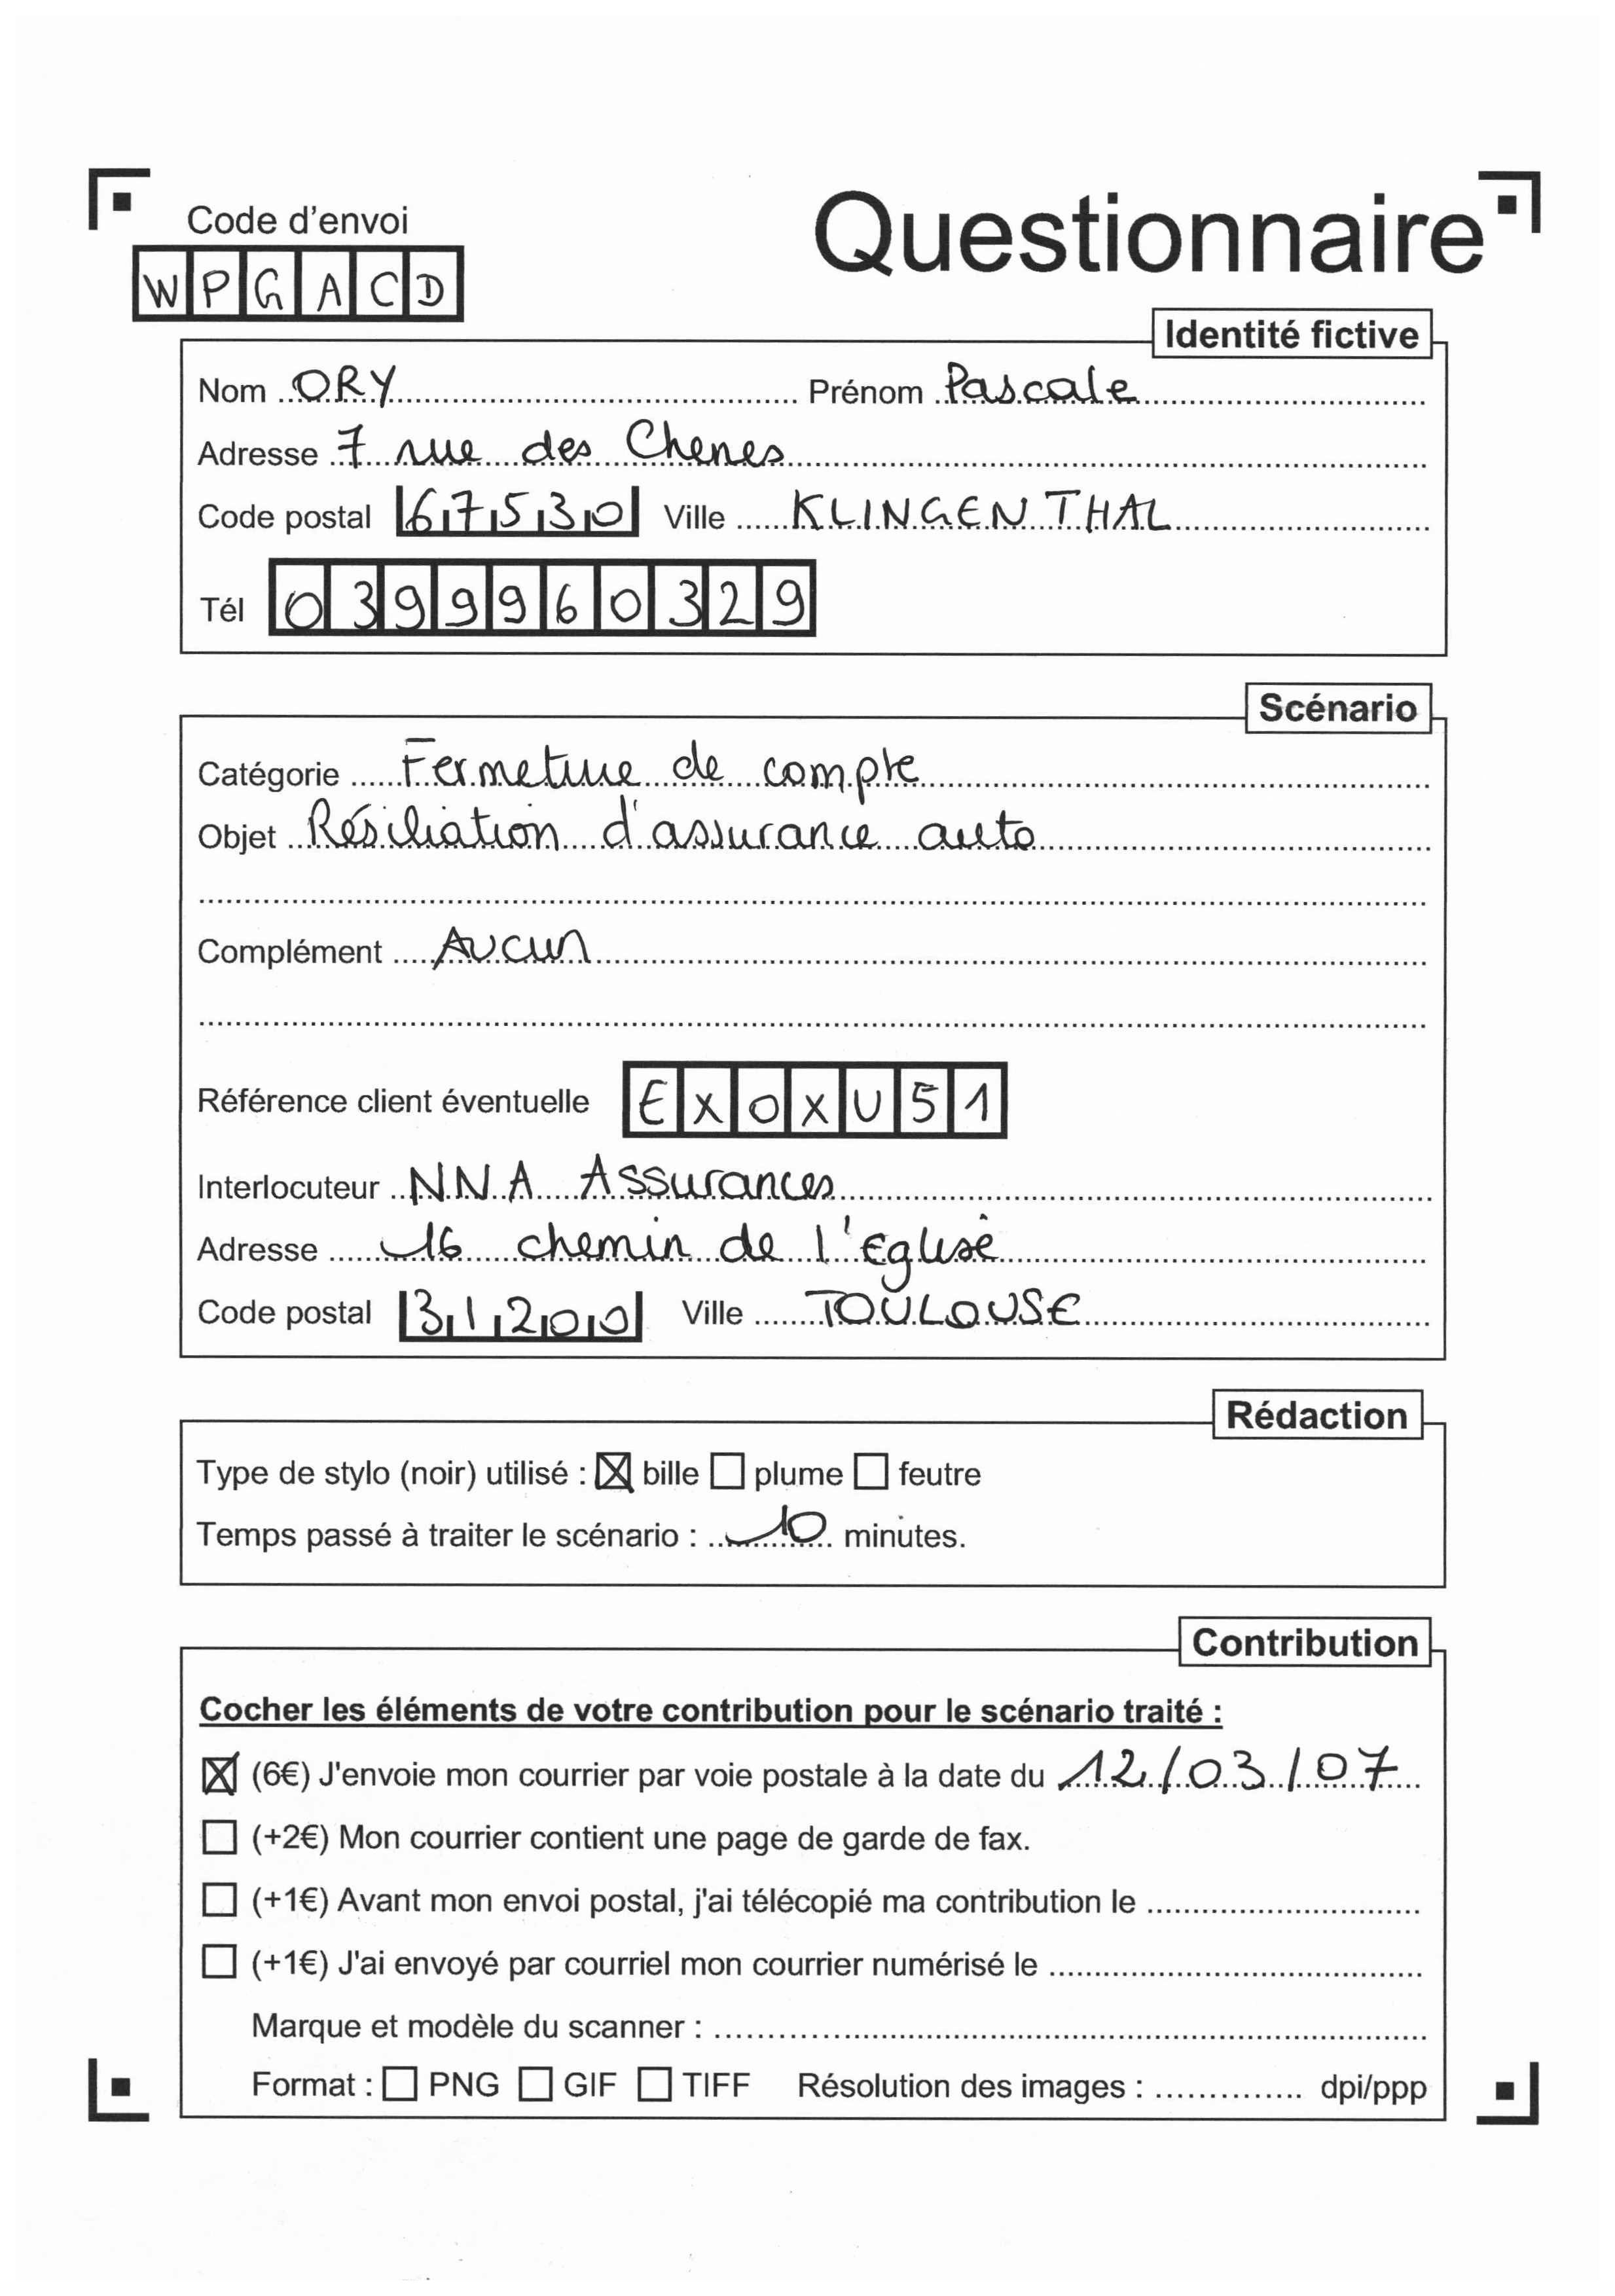 Code d'envoi
Questionnaire
WPGACD
Identité fictive
Nom ORY Prénom Pascale
Adresse 7 rue des Chenes
Code postal 67530 Ville KLINGENTHAL
Tél 0399960329
Scénario
Catégorie Fermeture de compte
Objet Résiliation d'assurance auto
Complément Aucun
Référence client éventuelle EXOXU51
Interlocuteur NNA Assurances
Adresse 16 chemin de l'Eglise
Code postal 31200 Ville TOULOUSE
Rédaction
Type de stylo (noir) utilisé : ☒ bille ☐ plume ☐ feutre
Temps passé à traiter le scénario : 10 minutes.
Contribution
Cocher les éléments de votre contribution pour le scénario traité :
☒ (6€) J'envoie mon courrier par voie postale à la date du 12/03/07
☐ (+2€) Mon courrier contient une page de garde de fax.
☐ (+1€) Avant mon envoi postal, j'ai télécopié ma contribution le
☐ (+1€) J'ai envoyé par courriel mon courrier numérisé le
Marque et modèle du scanner :
Format : ☐ PNG ☐ GIF ☐ TIFF Résolution des images : dpi/ppp